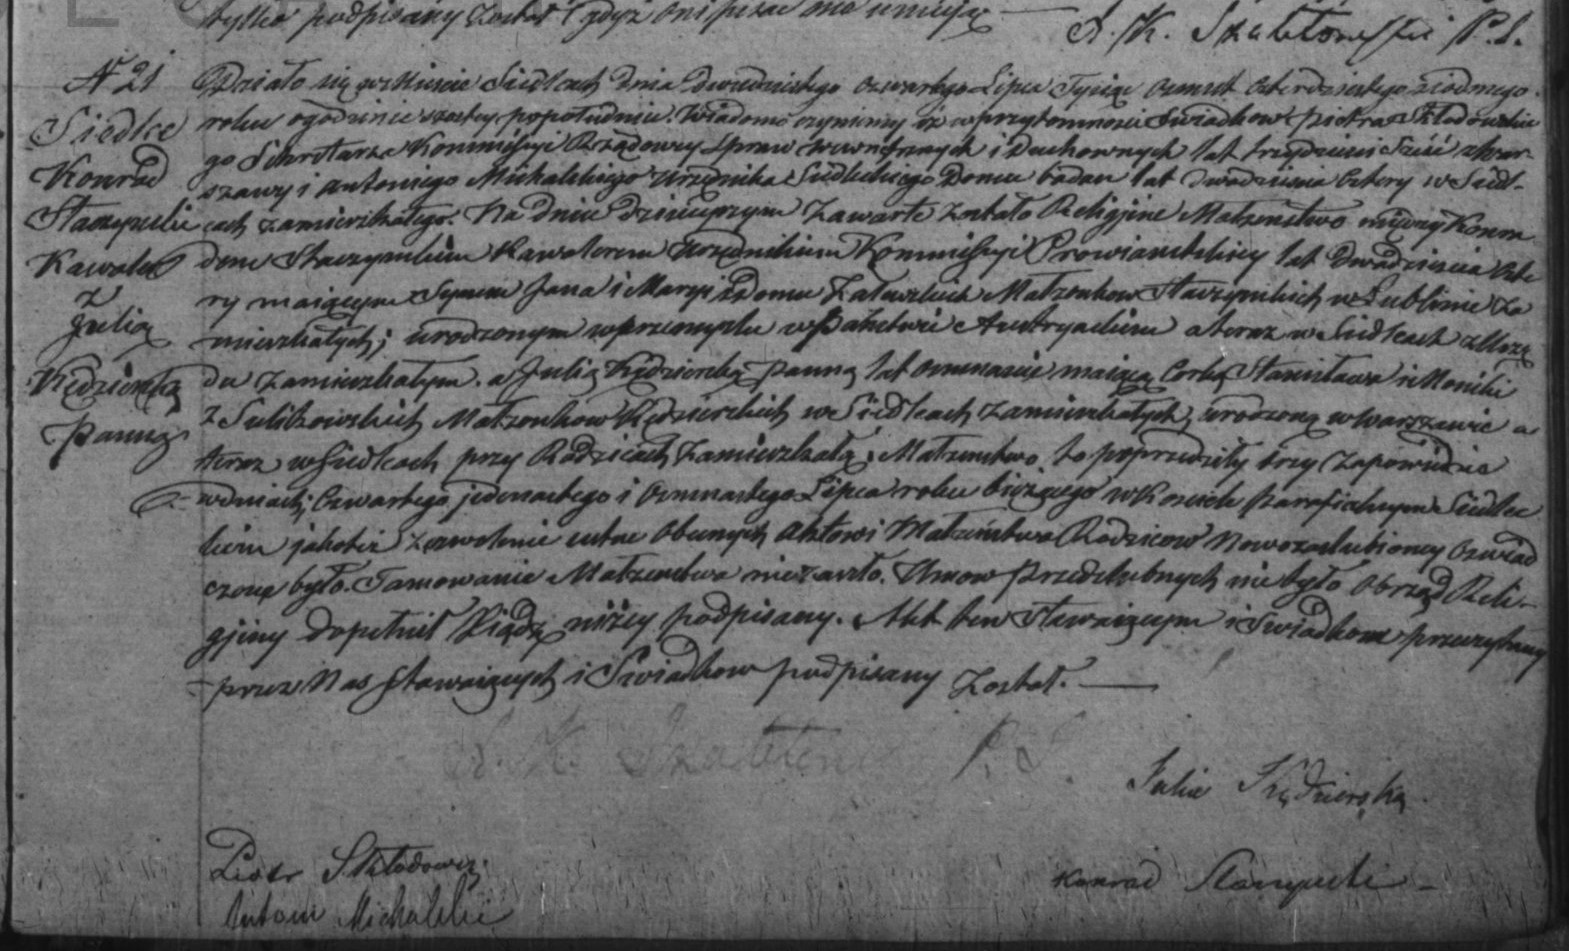 tylko podpisany został gdyż oni pisać nie umieją
P. S.
N 21
Siedlce
Konrad
Staczynski
Kawaler
z
Julią
Kędzierską
Panną
Działo się w Mieście Siedlcach dnia dwudziestego czwartego Lipca Tysiąc ośmset czterdziestego siodmego
roku o godzinie szostey popołudniu. Wiadomo czyniemy iż w przytomności Swiadkow Piotra Skłodowskie
go Sekretarza Kommissyi Rządowey Spraw wewnętrznych i Duchownych lat trzydzieści sześć z War-
szawy i Antoniego Michalskiego Urzędnika Siedleckiego Domu badań lat dwadzieścia cztery w Siedl-
cach zamieszkałego. Na dniu dzisieyszym zawarte zostało Religijne Małżenstwo między Konra
dem Staczynskim Kawalerem Urzędnikiem Kommissyi Prowiantskiey lat Dwadzieścia Czte
ry maiącym Synem Jana i Maryi z Domu Załuzkich Małżonkow Staczynskich w Lublinie za
mieszkałych; urodzonym w Przemyslu w Państwie Austryackim a teraz w Siedlcach z Urzę
du zamieszkałym. a Julią Kędzierską Panną lat ośmnaście maiącą Corką Stanisława i Moniki
z Małżonkow Kędzierskich w Siedlcach zamieszkałych, urodzoną w Warszawie a
teraz w Siedlcach przy Rodzicach zamieszkałą. Małżenstwo to poprzedziły trzy zapowiedzie
w dniach; Czwartego jedenastego i Osmnastego Lipca roku bieżącego w Kosciele Parafialnym Siedlec
kim jakoteż zezwolenie ustne obecnych Aktowi Małżeństwa Rodzicow Nowozaslubioney oswiad
czone było. Tamowanie Małżenstwa nie zaszło. Umow przedslubnych nie było Obrząd Reli-
gijny dopełnił Xiądz niżey podpisany. Akt ten Stawaiącym i Swiadkom przeczytany
przez Nas Stawaiących i Swiadkow podpisany został.
P. S.
Julia Kędzierska
Piotr Skłodowski
Konrad Staczynski
Antoni Michalski